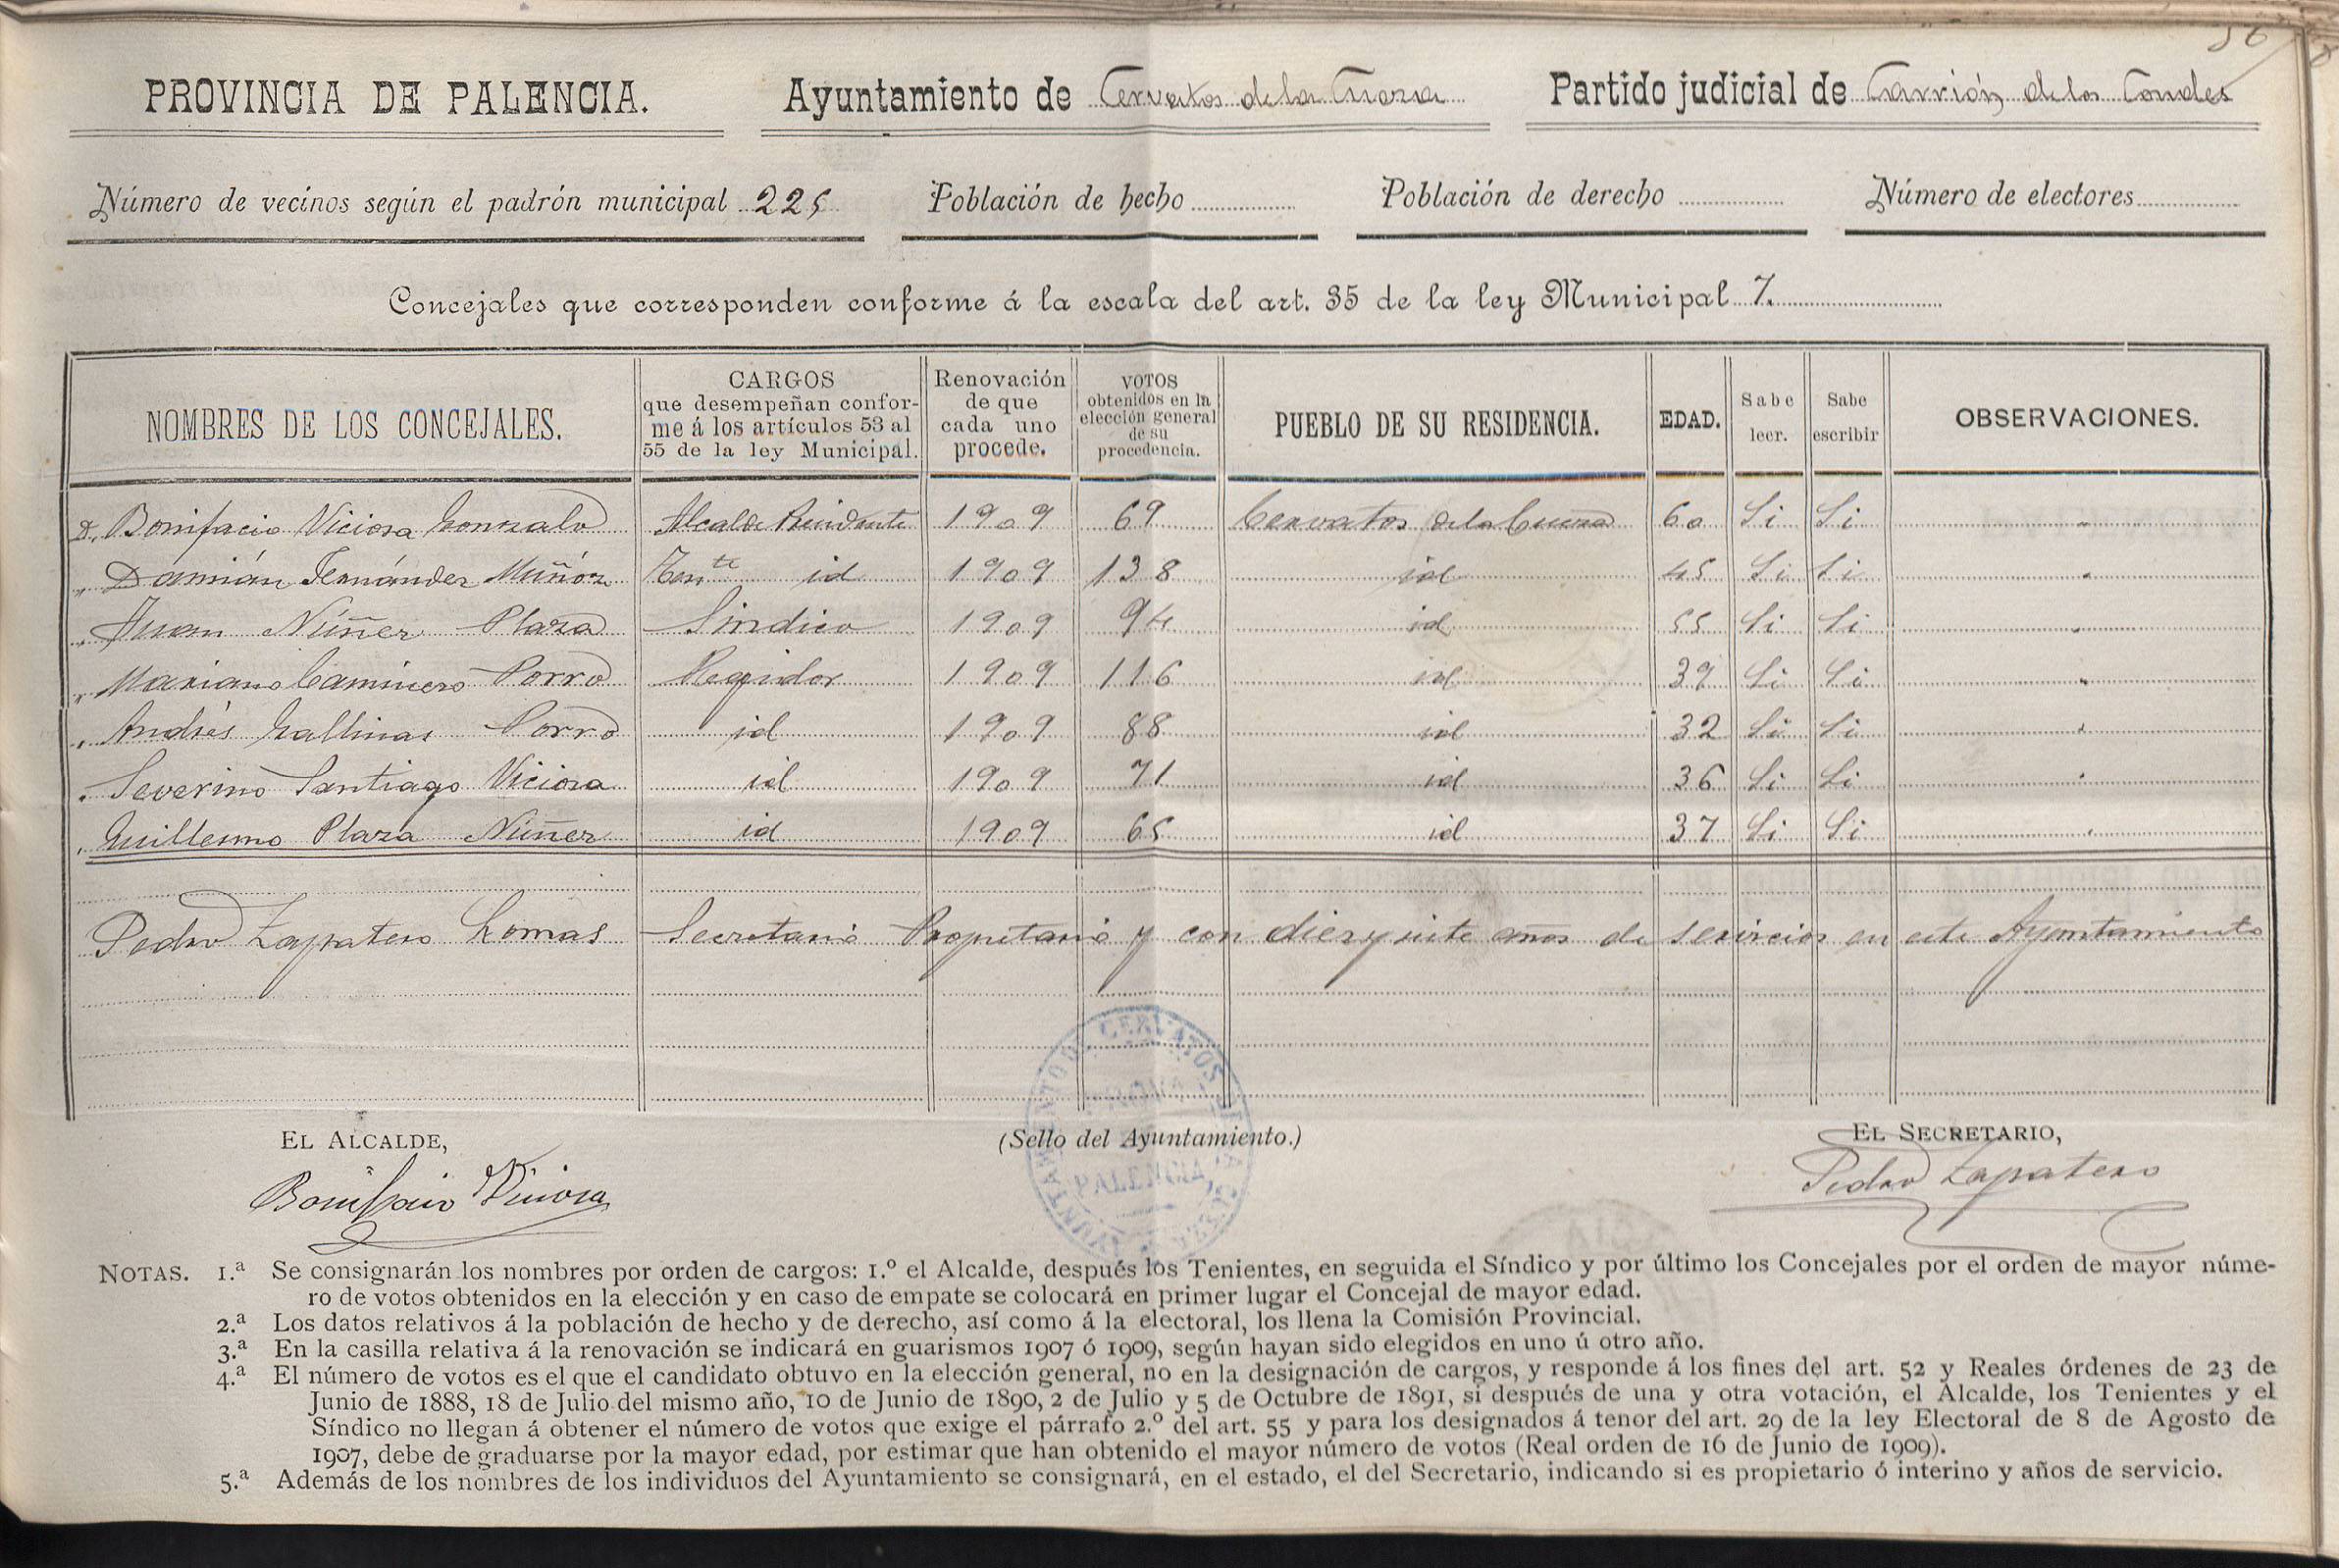 56
PROVINCIA DE PALENCIA. Ayuntamiento de Cervatos de la Cueza Partido judicial de Carrión de los Condes
Número de vecinos según el padrón municipal 225 Población de hecho Población de derecho Número de electores
Concejales que corresponden conforme á la escala del art. 35 de la ley Municipal 7.
NOMBRES DE LOS CONCEJALES. CARGOS que desempeñan confor- me á los artículos 53 al 55 de la ley Municipal. Renovación de que cada uno procede. VOTOS obtenidos en la elección general de su procedencia. PUEBLO DE SU RESIDENCIA. EDAD. Sabe leer. Sabe escribir OBSERVACIONES.
D. Bonifacio Viciosa Gonzalo Alcalde Presidente 1909 69 Cervatos de la Cueza 60 Si Si "
" Damián Fernández Muñoz Tente id 1909 138 id 45 Si Si "
" Juan Núñez Plaza Sindico 1909 94 id 55 Si Si "
" Mariano Caminero Porro Regidor 1909 116 id 39 Si Si "
" Andrés Gallinas Porro id 1909 88 id 32 Si Si "
" Severino Santiago Viciosa id 1909 71 id 36 Si Si "
" Guillermo Plaza Núñez id 1909 65 id 37 Si Si "
Pedro Zapatero Lomas Secretario Propietario y con diez y siete años de servicios en este Ayuntamiento
EL ALCALDE, (Sello del Ayuntamiento.) EL SECRETARIO,
Bonifacio Viciosa Pedro Zapatero
AYUNTAMIENTO DE CERVATOS DE LA CUEZA
PALENCIA
NOTAS. 1.ª Se consignarán los nombres por orden de cargos: 1.º el Alcalde, después los Tenientes, en seguida el Síndico y por último los Concejales por el orden de mayor núme-
ro de votos obtenidos en la elección y en caso de empate se colocará en primer lugar el Concejal de mayor edad.
2.ª Los datos relativos á la población de hecho y de derecho, así como á la electoral, los llena la Comisión Provincial.
3.ª En la casilla relativa á la renovación se indicará en guarismos 1907 ó 1909, según hayan sido elegidos en uno ú otro año.
4.ª El número de votos es el que el candidato obtuvo en la elección general, no en la designación de cargos, y responde á los fines del art. 52 y Reales órdenes de 23 de
Junio de 1888, 18 de Julio del mismo año, 10 de Junio de 1890, 2 de Julio y 5 de Octubre de 1891, si después de una y otra votación, el Alcalde, los Tenientes y el
Síndico no llegan á obtener el número de votos que exige el párrafo 2.º del art. 55 y para los designados á tenor del art. 29 de la ley Electoral de 8 de Agosto de
1907, debe de graduarse por la mayor edad, por estimar que han obtenido el mayor número de votos (Real orden de 16 de Junio de 1909).
5.ª Además de los nombres de los individuos del Ayuntamiento se consignará, en el estado, el del Secretario, indicando si es propietario ó interino y años de servicio.